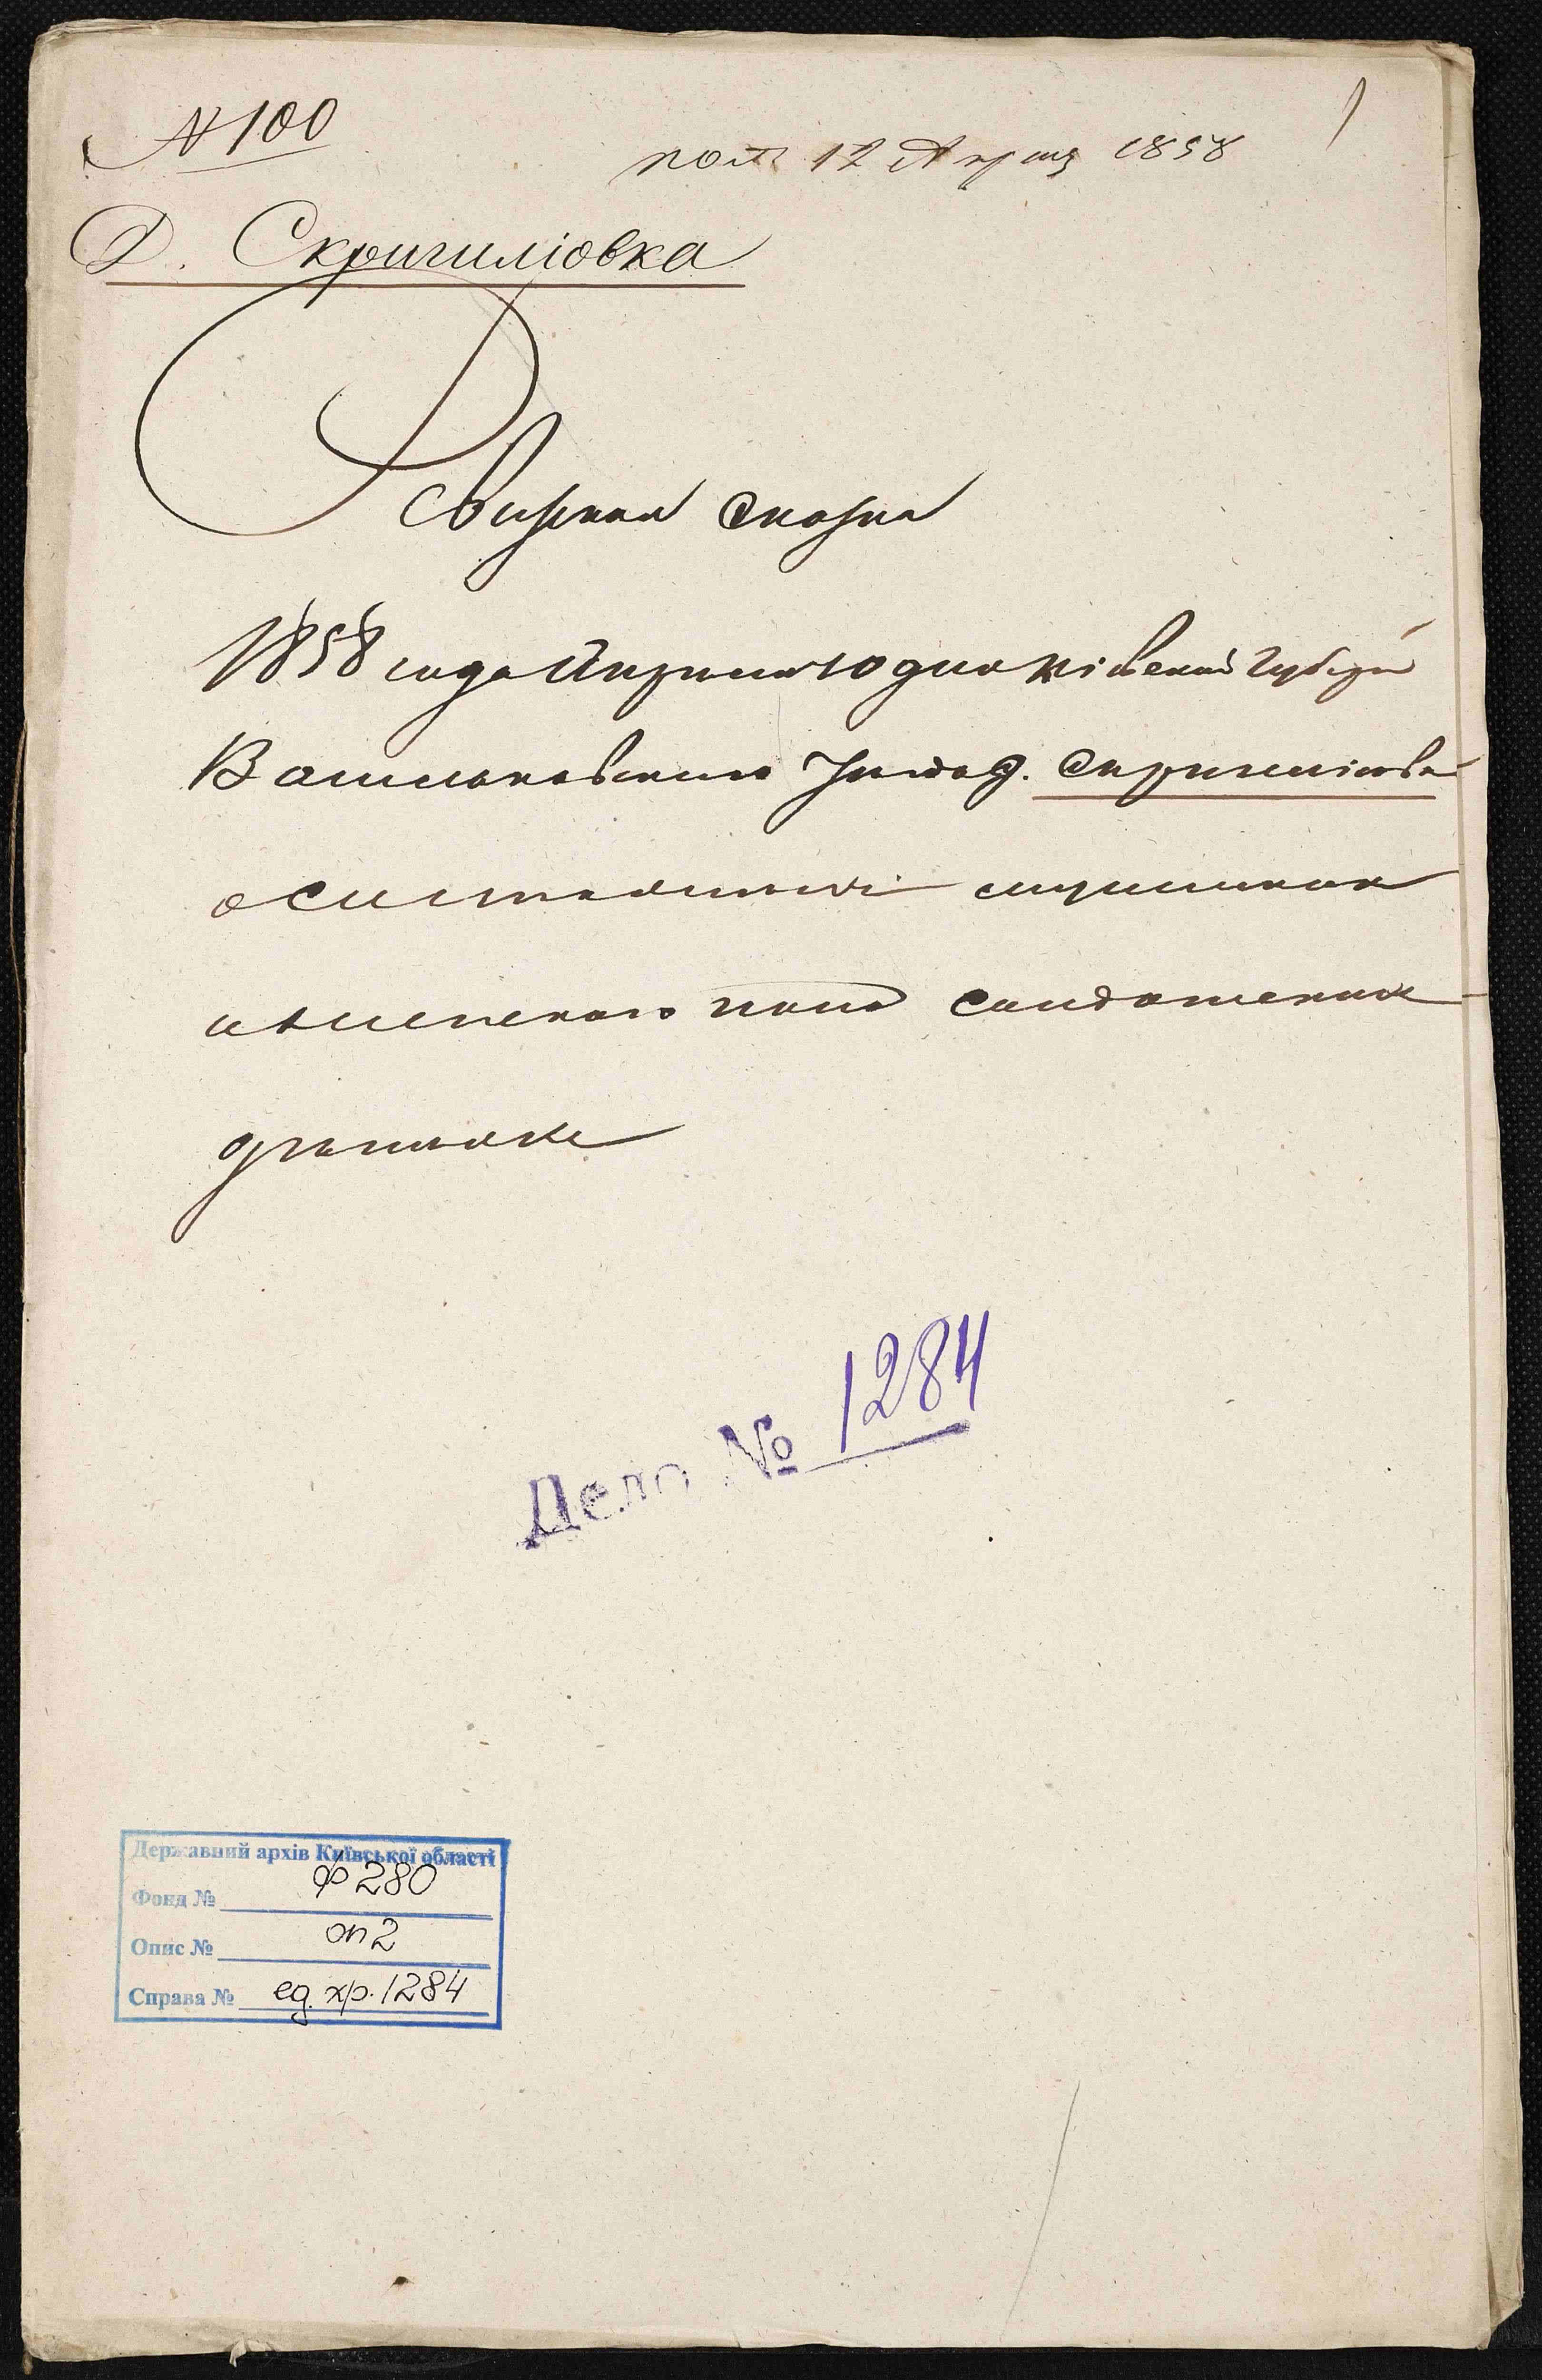 № 100
1
пол. 12 Апреля 1858
Д. Скригиліовка
Ревизская сказка
1858 года Апреля 10 дня Кіевской Губерніи
Васильковского Уезда д. Скригиліовка
о состоящихъ мужескаго
и женскаго пола
Дело № 1284
Державний архів Київської області
Фонд № ф 280
Опис № оп 2
Справа № ед. хр. 1284